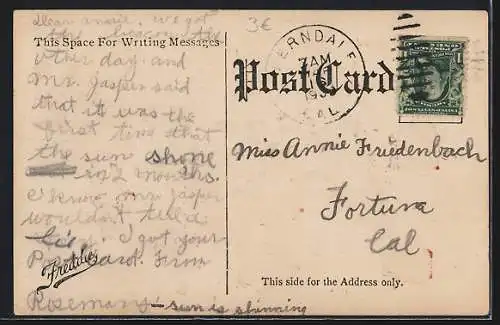 Dear annie, we got
the
This Space For Writing Messages
other day. and
Mr. Jasper said
that it was the
first time that
the sun shone
in 2 months.
I know mr. Jasper
wouldn't tell a
I got your
Post Card. From
Freddie
Rosemary - sun is shinning
3€
ERNDALE
7AM
CAL
Post Card
1
Miss Annie Friedenbach
Fortuna
Cal
This side for the Address only.